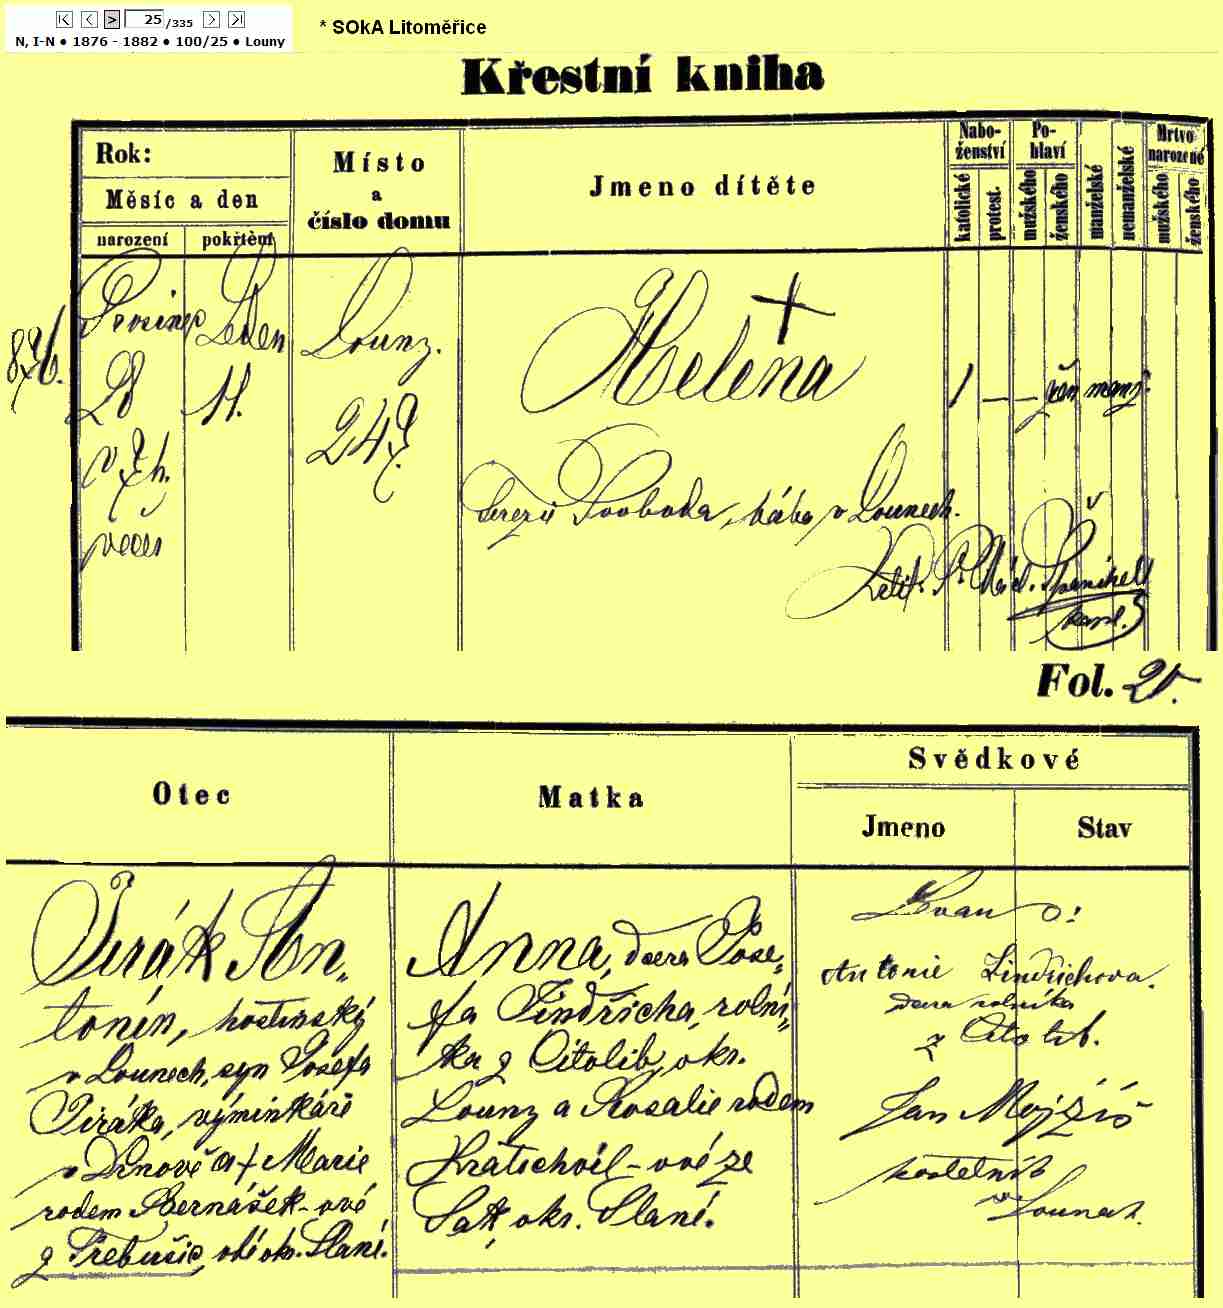 25 /335
N, I-N • 1876 - 1882 • 100/25 • Louny
* SOkA Litoměřice
Křestní kniha
Rok:
Měsíc a den
narození
pokřtění
Místo
a
číslo domu
Jmeno dítěte
Nabo-
ženství
katolické
protest.
Po-
hlaví
mužského
ženského
manželské
nemanželské
Mrtvo
narozené
mužského
ženského
876.
Prosinec
28
v 7 h.
večer
Leden
11.
Louny.
247.
Helena
1 — — žen manž.
Terezie Svoboda, bába v Lounech.
kapl.
Fol. 25.
Otec
Matka
Svědkové
Jmeno
Stav
Jirák An-
tonín, hostinský
v Lounech, syn Josefa
Jiráka, výminkáře
v Drnově a † Marie
rodem Bernášek-ové
z Třebusic, obé okr. Slaně.
Anna, dcera Jose-
fa Jindřicha, rolní-
ka z Citolib, okr.
Louny a Rosalie rodem
Kratschvíl-ové ze
Sak, okr. Slaně.
Antonie Jindřichova.
dcera rolníka
z Citolib.
Jan Mojžíš
kostelník
v Lounech.